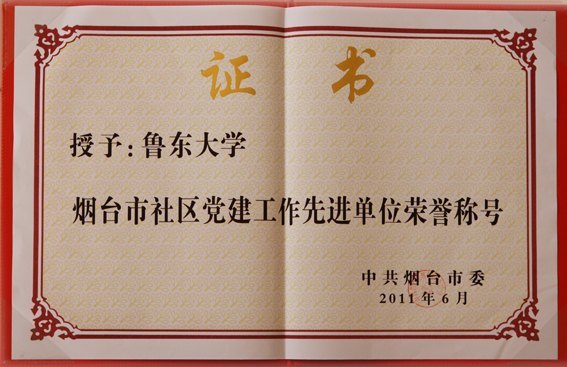 证书
授予：鲁东大学
烟台市社区党建工作先进单位荣誉称号
中共烟台市委
2011年6月